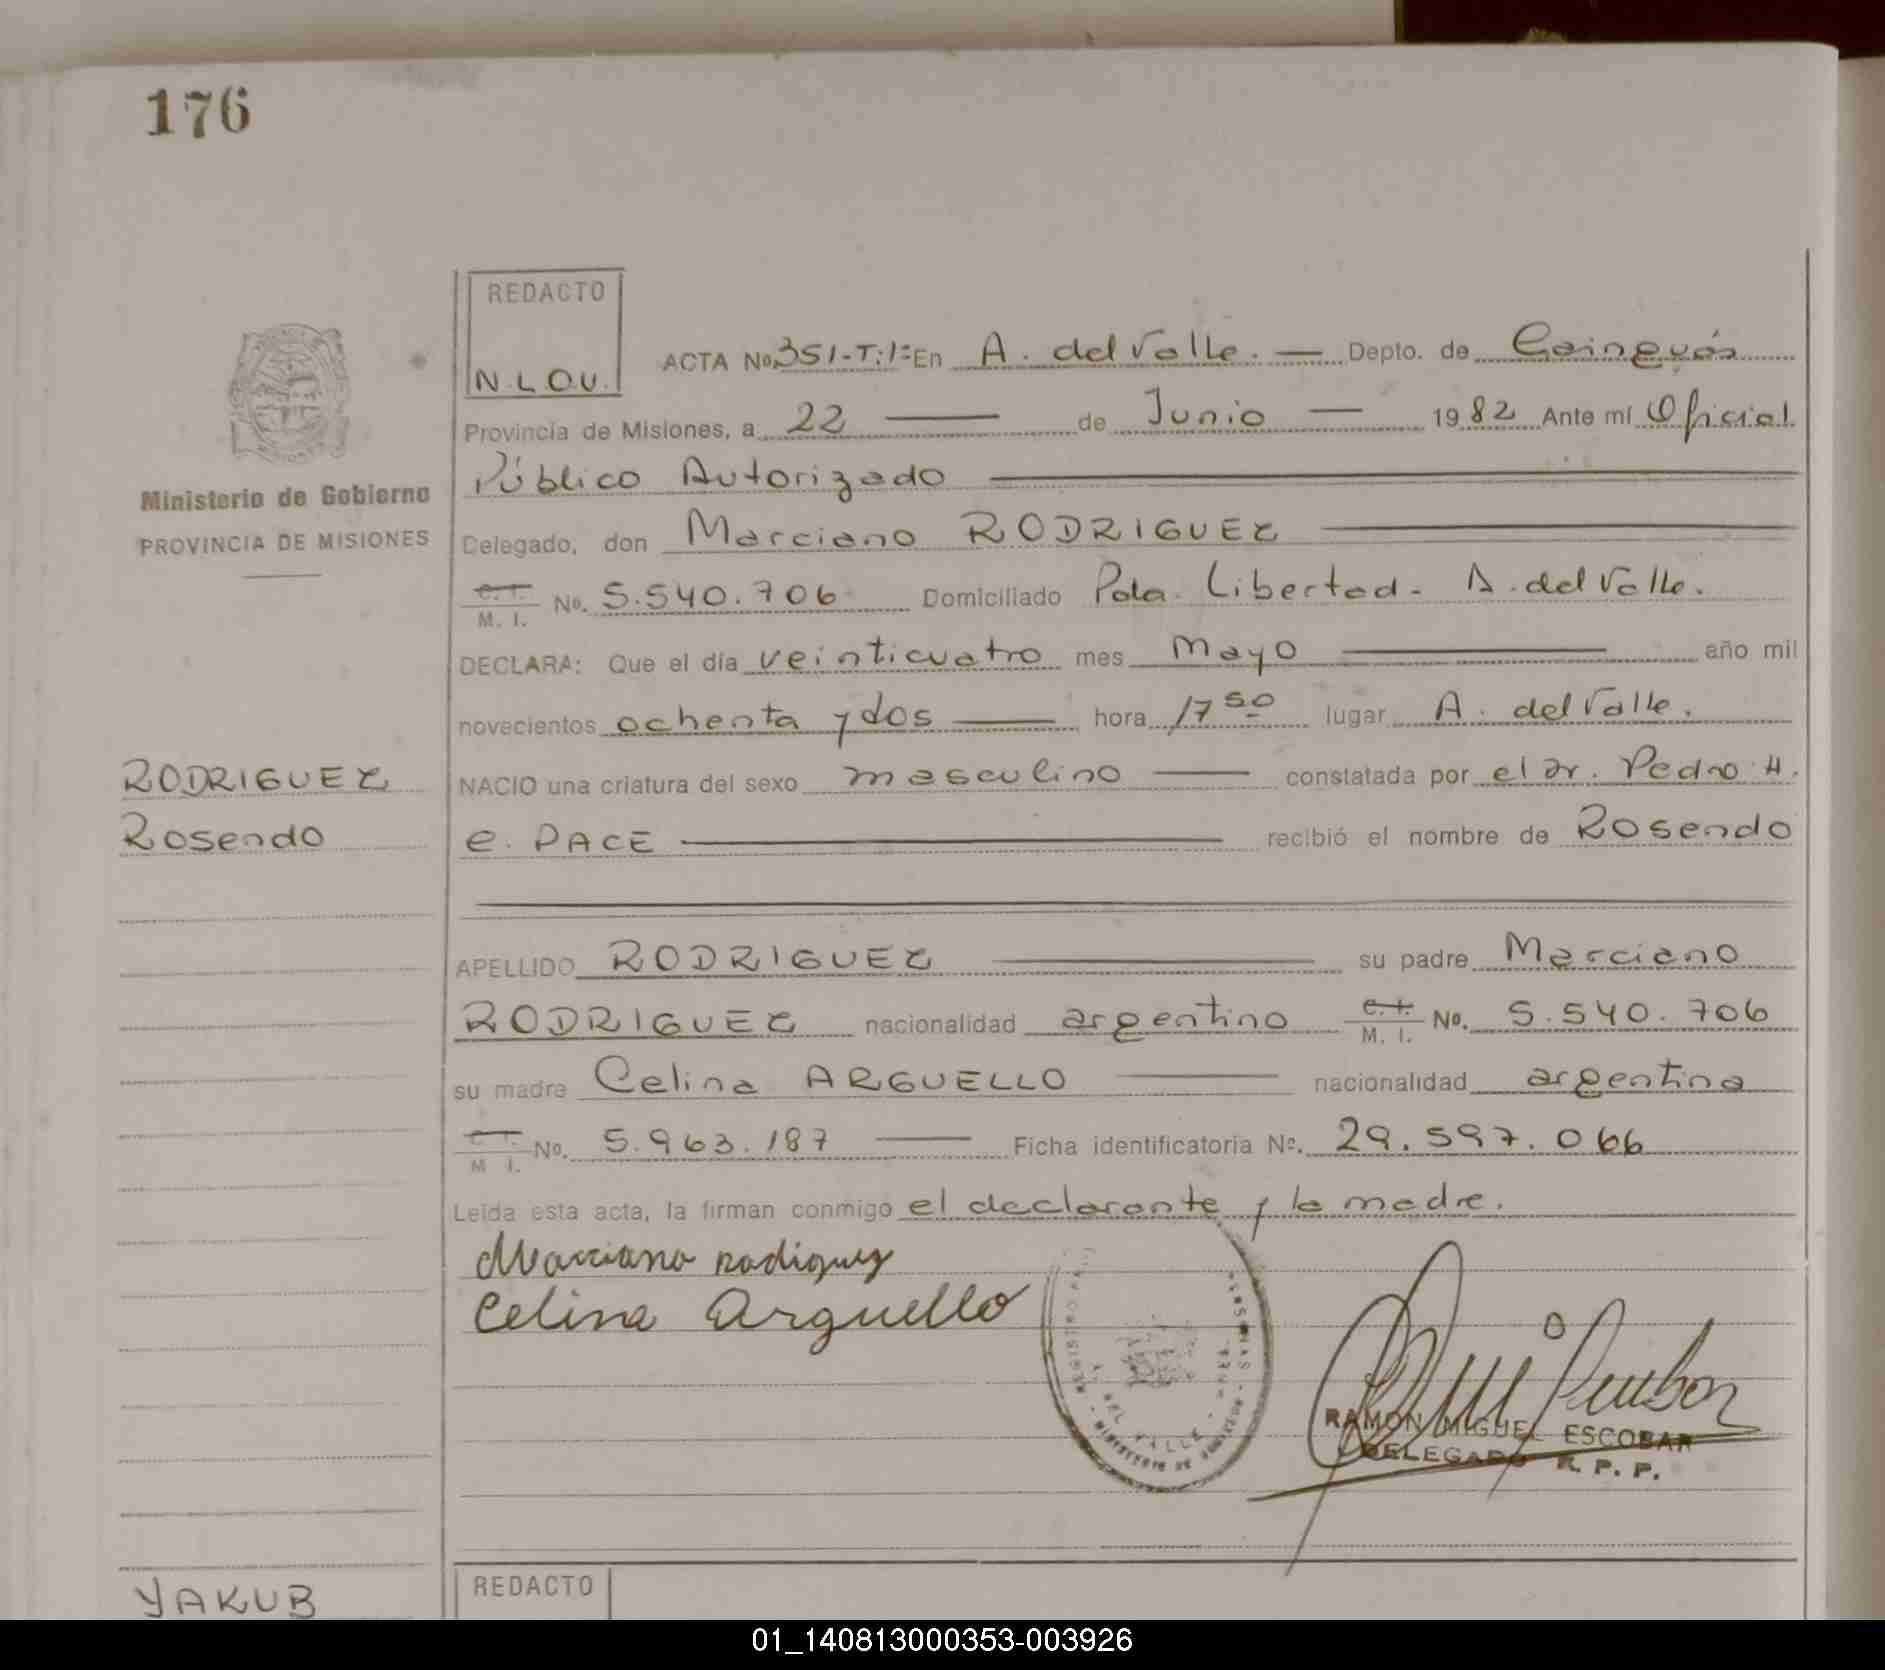 176
REDACTO
N.L.O.V.
ACTA No. 351-T:1º En A. del Valle. — Depto. de Cainguás
Provincia de Misiones, a 22 — de Junio — 1982 Ante mí Oficial
Público Autorizado
Ministerio de Gobierno
PROVINCIA DE MISIONES
Delegado, don Marciano RODRIGUEZ
C.I. M. I. No. 5.540.706 Domiciliado Pda. Libertad - A. del Valle.
DECLARA: Que el día veinticuatro mes Mayo — año mil
novecientos ochenta y dos — hora 17 50 lugar A. del Valle.
RODRIGUEZ
Rosendo
NACIO una criatura del sexo masculino — constatada por el Dr. Pedro H.
e. PACE — recibió el nombre de Rosendo
APELLIDO RODRIGUEZ — su padre Marciano
RODRIGUEZ nacionalidad argentino C.I. M. I. No. 5.540.706
su madre Celina ARGUELLO — nacionalidad argentina
C.I. M I. No. 5.963.187 — Ficha identificatoria No. 29.597.066
Leída esta acta, la firman conmigo el declarante y la madre.
Marciano Rodiguez
Celina Arguello
REGISTRO PERSONAS
DEL VALLE
MINISTERIO DE
RAMON MIGUEL ESCOBAR
DELEGADO R. P. P.
YAKUB
REDACTO
01_140813000353-003926